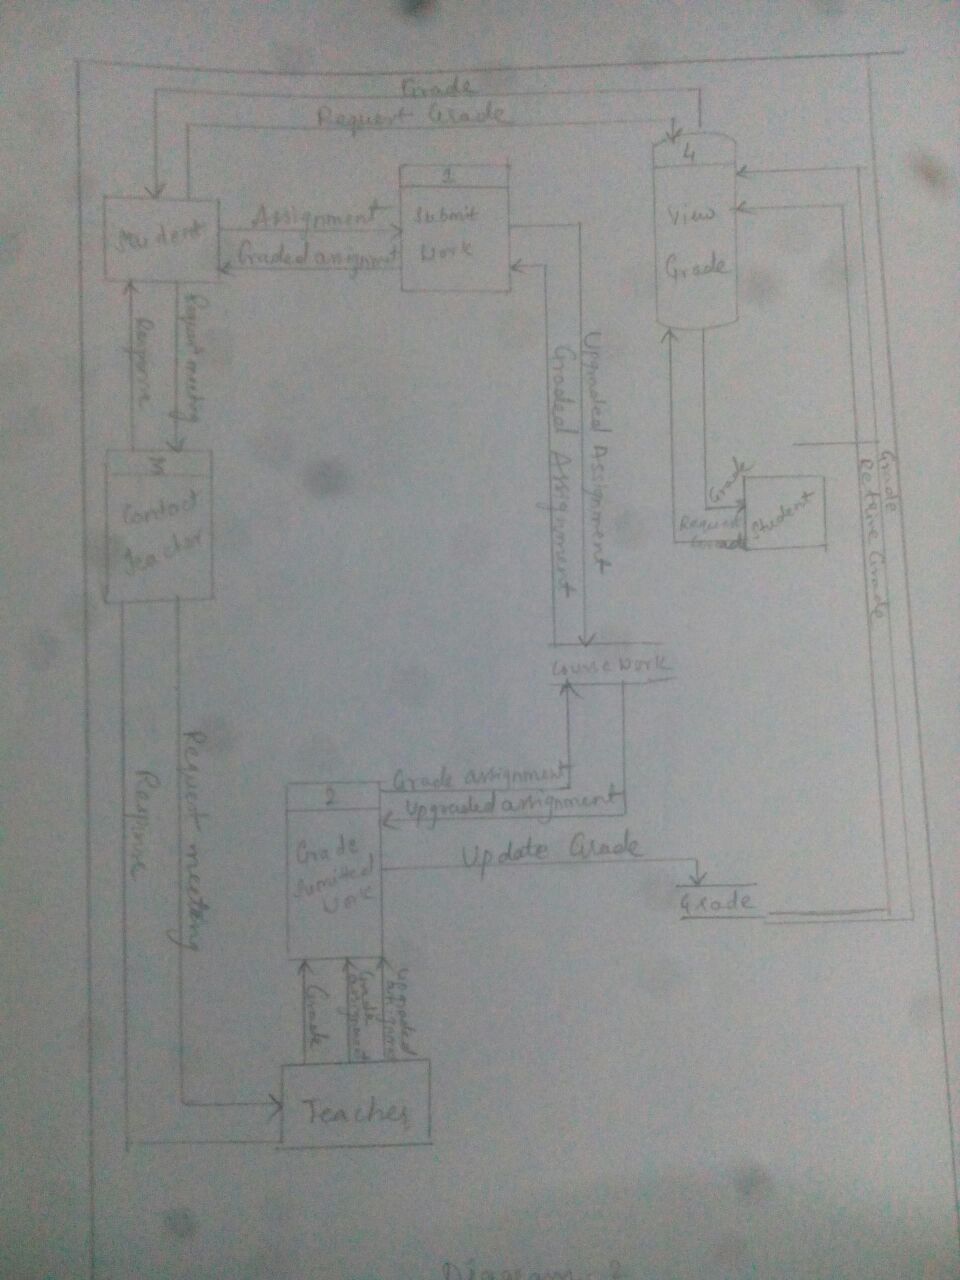 Grade
Request Grade
4
View
Grade
1
Submit
Work
Student
Assignment
Graded assignment
Response
Request meeting
Contact
Upgraded Assignment
Graded Assignment
Grade
Request
Grade
Student
Grade
Retrive Grade
Course Work
Grade assignment
Upgraded assignment
2
Grade
Sumitted
Work
Update Grade
Grade
Response
Request meeting
Grade
Grade
assignment
Upgraded
Teacher
Diagram